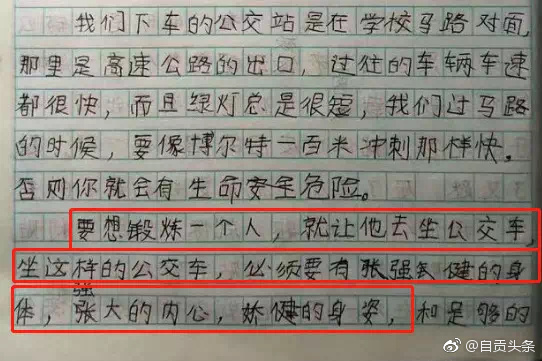 我们下车的公交站是在学校马路对面,
那里是高速公路的出口，过往的车辆车速
都很快，而且绿灯总是很短，我们过马路
的时候，要像博尔特一百米冲刺那样快。
否则你就会有生命安全危险。
要想锻炼一个人，就让他去坐公交车,
坐这样的公交车，必须要有强健的身
强
体，张大的内心，娇健的身姿，和足够的
@自贡头条